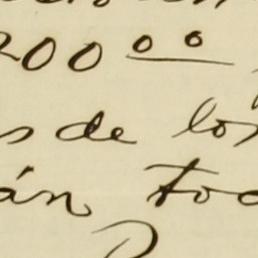 200 00
s de los
án tod